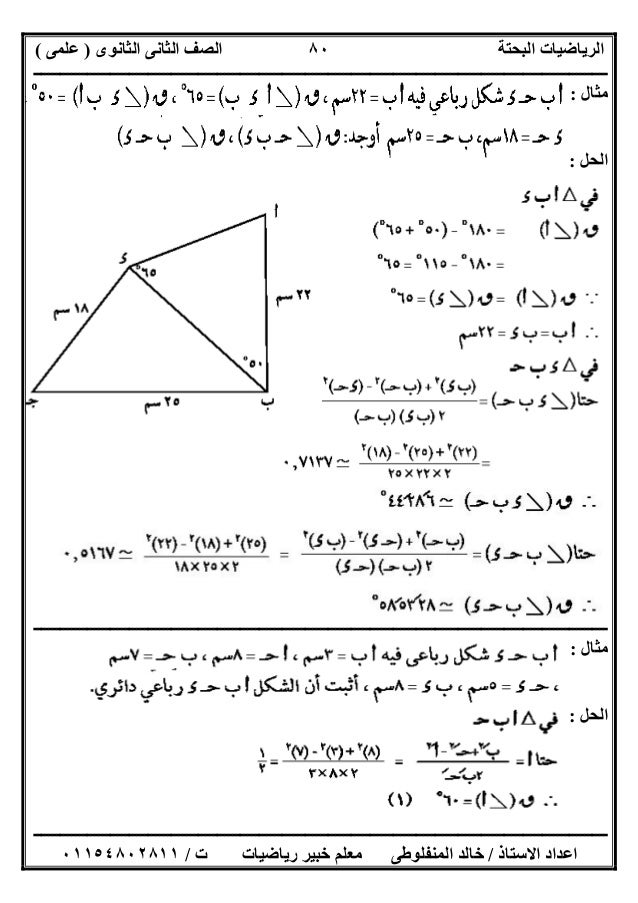 الرياضيات البحتة ٨٠ الصف الثانى الثانوى ( علمى )
مثال : أ ب حـ ء شكل رباعي فيه أ ب = ٢٢سم ، ق (∠ أ ء ب) = ٦٥° ، ق (∠ ء ب أ) = ٥٠° ،
ء حـ = ١٨سم، ب حـ = ٢٥سم أوجد: ق (∠ حـ ب ء) ، ق (∠ ب حـ ء)
الحل :
في △ أ ب ء
ق (∠ أ) = ١٨٠° - (٥٠° + ٦٥°)
= ١٨٠° - ١١٥° = ٦٥°
∵ ق (∠ أ) = ق (∠ ء) = ٦٥°
∴ أ ب = ب ء = ٢٢سم
في △ ء ب حـ
حتا(∠ ء ب حـ) = (ب ء)٢ + (ب حـ)٢ - (ء حـ)٢ / ٢ (ب ء) (ب حـ)
= (٢٢)٢ + (٢٥)٢ - (١٨)٢ / ٢ × ٢٢ × ٢٥ ≃ ٠,٧١٣٧
∴ ق (∠ ء ب حـ) ≃ ٦ ٢٨ ٤٤°
حتا(∠ ب حـ ء) = (ب حـ)٢ + (حـ ء)٢ - (ب ء)٢ / ٢ (ب حـ) (حـ ء) = (٢٥)٢ + (١٨)٢ - (٢٢)٢ / ٢ × ٢٥ × ١٨ ≃ ٠,٥١٦٧
∴ ق (∠ ب حـ ء) ≃ ٢٨ ٥٣ ٥٨°
أ
ء
٦٥°
٢٢ سم
١٨ سم
٥٠°
جـ
ب
٢٥ سم
مثال : أ ب حـ ء شكل رباعى فيه أ ب = ٣سم ، أ حـ = ٨سم ، ب حـ = ٧سم
، حـ ء = ٥سم ، ب ء = ٨سم ، أثبت أن الشكل أ ب حـ ء رباعي دائري.
الحل : في △ أ ب حـ
حتا أ = بَ٢ + حـَ٢ - أَ٢ / ٢ بَ حـَ = (٨)٢ + (٣)٢ - (٧)٢ / ٢ × ٨ × ٣ = ١/٢
∴ ق (∠ أ) = ٦٠° (١)
اعداد الاستاذ / خالد المنفلوطى معلم خبير رياضيات ت / ٠١١٥٤٨٠٢٨١١